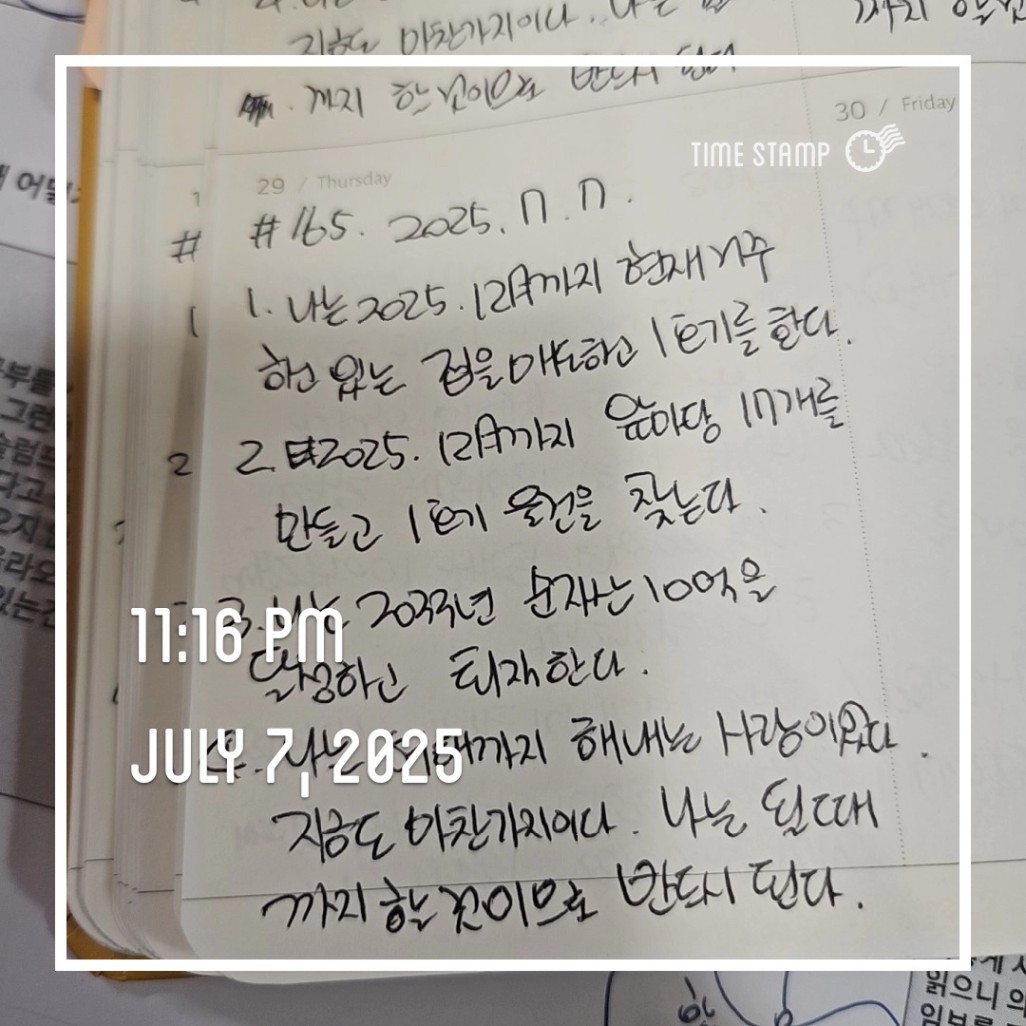 지금도 마찬가지이다. 나는
까지 한 것이므로 반드시 된다
까지
30 / Friday
TIME STAMP
29 / Thursday
#165. 2025. 7. 7.
1. 나는 2025. 12月까지 현재 거주
하고 있는 집을 매도하고 1호기를 한다.
2. 2025. 12月까지 앞마당 17개를
만들고 1호기 물건을 찾는다.
3. 나는 2033년 순자산 10억을
달성하고 퇴재한다.
4. 나는 까지 해내는 사람이었다.
지금도 마찬가지이다. 나는 될때
까지 하는 것이므로 반드시 된다.
11:16 PM
JULY 7, 2025
읽으니 의